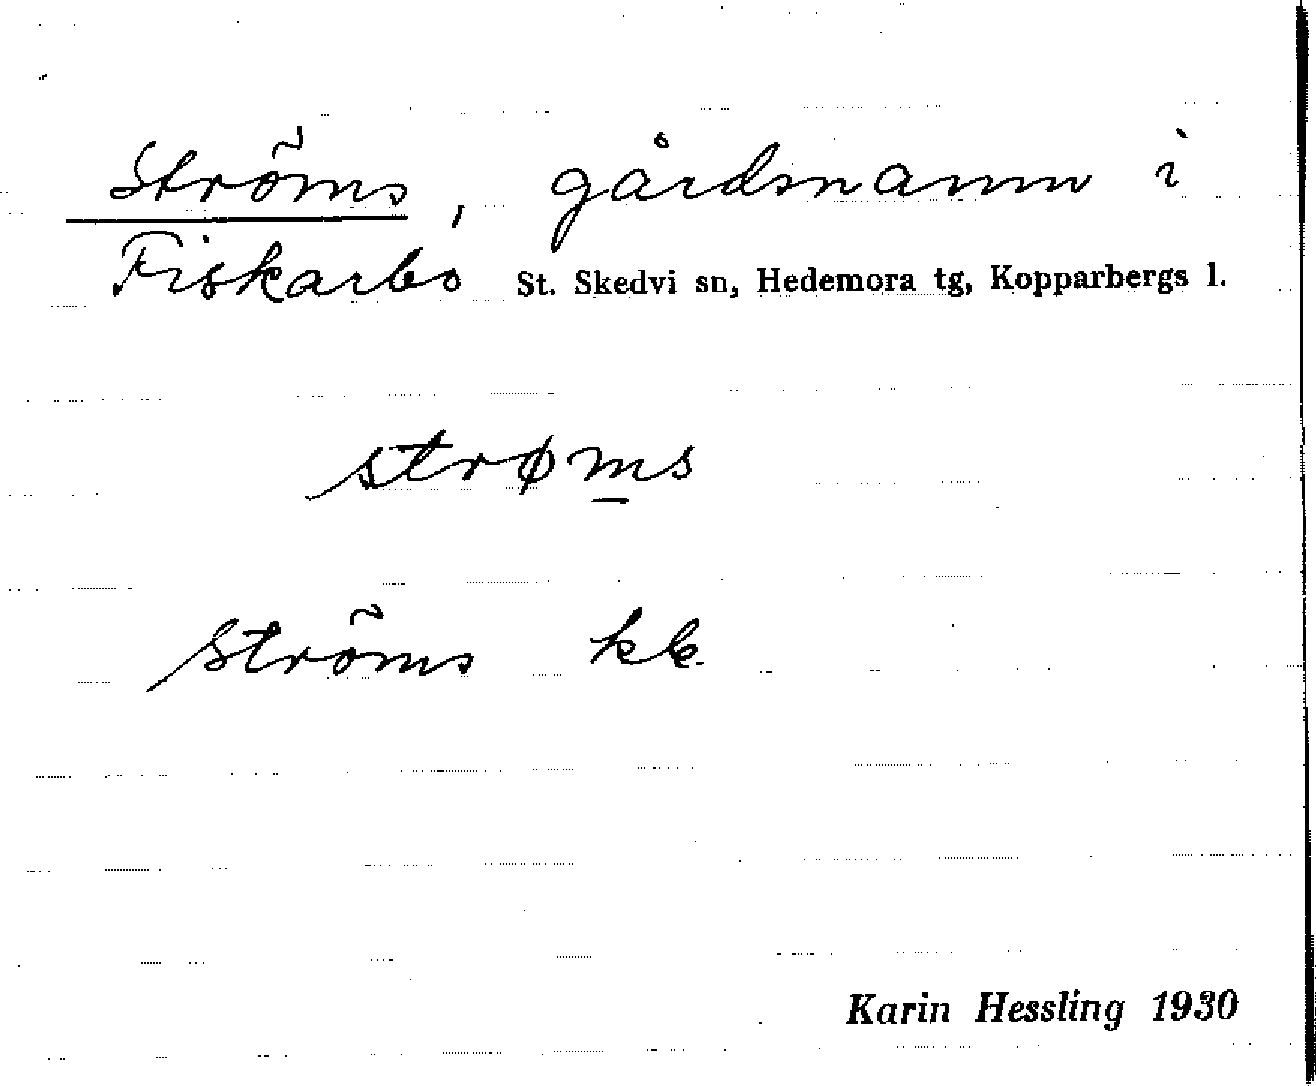 Ströms, gårdsnamn i
Fiskarbo St. Skedvi sn, Hedemora tg, Kopparbergs l.
strøms
Ströms kk.
Karin Hessling 1930